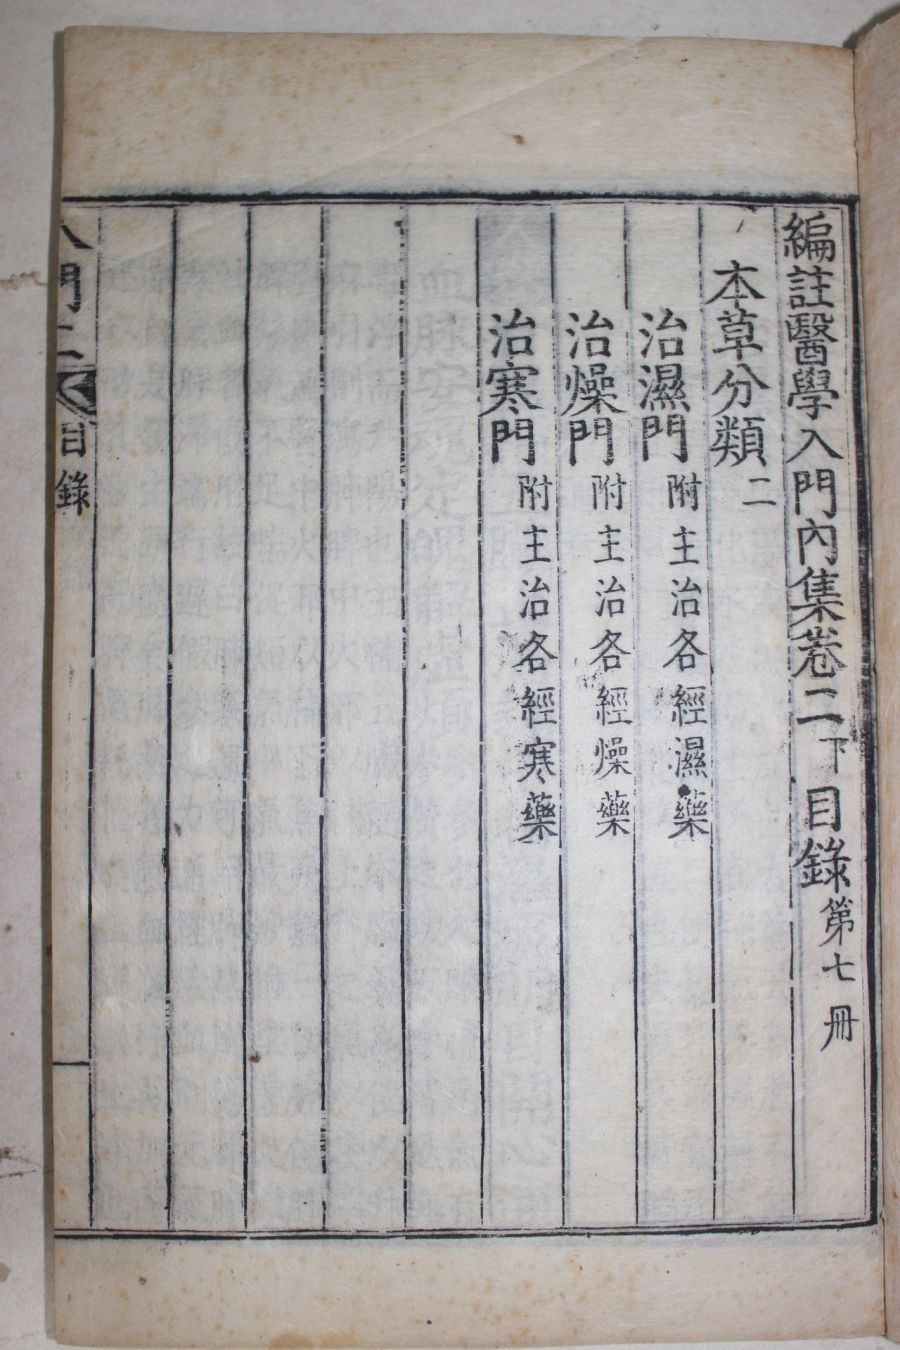 編註醫學入門內集卷二下目錄第七冊
本草分類二
治濕門附主治各經濕藥
治燥門附主治各經燥藥
治寒門附主治各經寒藥
入門二目錄